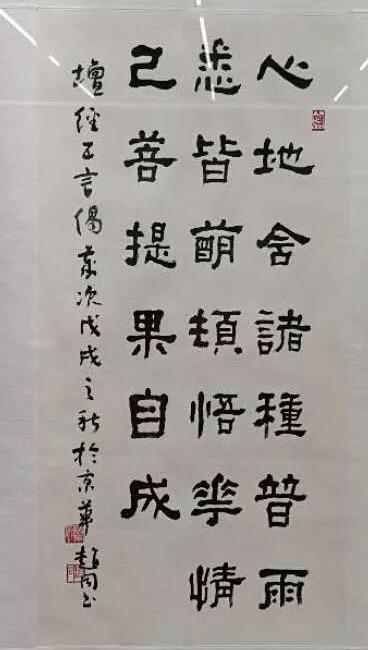 心地含諸種普雨
悉皆萌頓悟花情
已菩提果自成
壇經五言偈歲次戊戌之秋於京華趙書